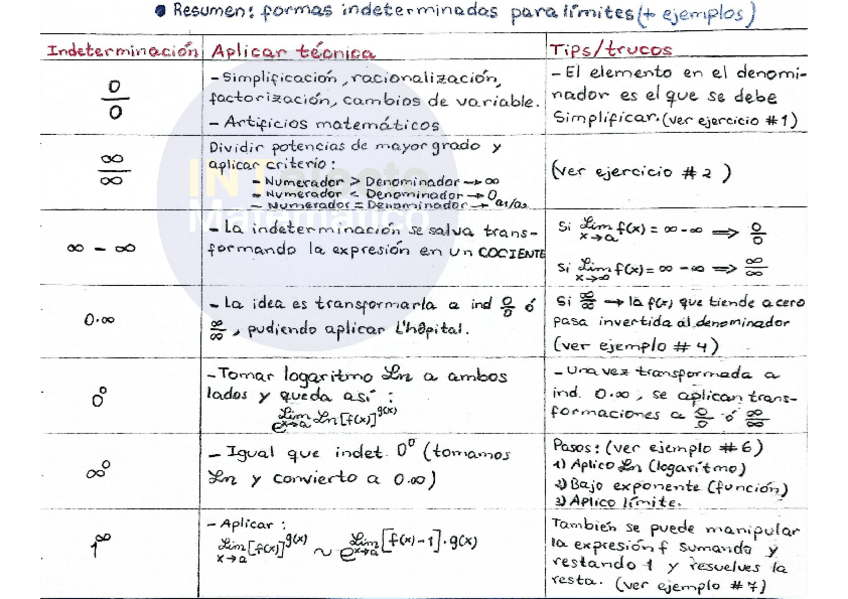 • Resumen: formas indeterminadas para límites (+ ejemplos)
Indeterminación | Aplicar técnica | Tips/trucos
0/0
- Simplificación, racionalización,
factorización, cambios de variable.
- Artificios matemáticos
- El elemento en el denomi-
nador es el que se debe
Simplificar. (ver ejercicio #1)
∞/∞
Dividir potencias de mayor grado y
aplicar criterio:
- Numerador > Denominador → ∞
- Numerador < Denominador → 0
- Numerador = Denominador → a₁/a₂
(ver ejercicio # 2)
∞ - ∞
- La indeterminación se salva trans-
formando la expresión en un COCIENTE
Si Lim x→a f(x) = ∞-∞ ⇒ 0/0
Si Lim x→∞ f(x) = ∞ - ∞ ⇒ ∞/∞
0·∞
- La idea es transformarla a ind 0/0 ó
∞/∞, pudiendo aplicar L'hôpital.
Si ∞/∞ → la f(x) que tiende a cero
pasa invertida al denominador
(ver ejemplo # 4)
0⁰
- Tomar logaritmo Ln a ambos
lados y queda así:
e^(Lim x→a Ln[f(x)]^g(x))
- Una vez transformada a
ind. 0·∞, se aplican trans-
formaciones a 0/0 ó ∞/∞
∞⁰
- Igual que indet. 0⁰ (tomamos
Ln y convierto a 0·∞)
Pasos: (ver ejemplo #6)
1) Aplico Ln (logaritmo)
2) Bajo exponente (función)
3) Aplico límite.
1^∞
- Aplicar:
Lim x→a [f(x)]^g(x) ~ e^(Lim x→a [f(x)-1]·g(x))
También se puede manipular
la expresión f sumando y
restando 1 y resuelves la
resta. (ver ejemplo #7)
INTelecto
Matemático